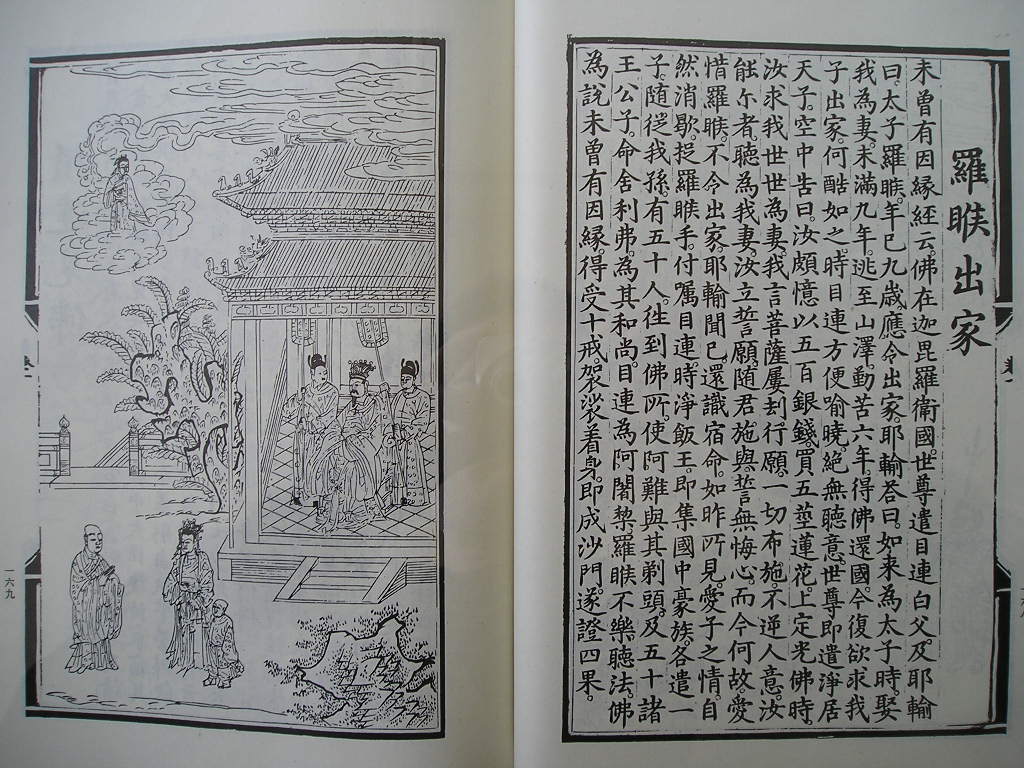 羅睺出家
未曾有因縁經云。佛在迦毘羅衛國。世尊遣目連白父及耶輸
曰。太子羅睺。年已九歲。應令出家。耶輸荅曰。如来為太子時。娶
我為妻。未滿九年。逃至山澤。勤苦六年得佛還國。今復欲求我
子出家。何酷如之。時目連方便喻曉。絶無聽意。世尊即遣淨居
天子。空中告曰。汝頗憶以五百銀錢買五莖蓮花。上定光佛時
汝求我世世為妻。我言菩薩屢刼行願。一切布施。不逆人意。汝
能尒者。聽為我妻。汝立誓願随君施與。誓無悔心。而今何故。愛
惜羅睺。不令出家。耶輸聞已。還識宿命。如昨所見。愛子之情。自
然消歇。捉羅睺手。付囑目連。時淨飯王。即集國中豪族。各遣一
子。随從我孫。有五十人。往到佛所。使阿難與其剃頭。及五十諸
王公子。命舍利弗。為其和尚。目連為阿闍棃。羅睺不樂聽法。佛
為說未曾有因縁。得受十戒。袈裟着身。即成沙門。遂證四果。
一六九